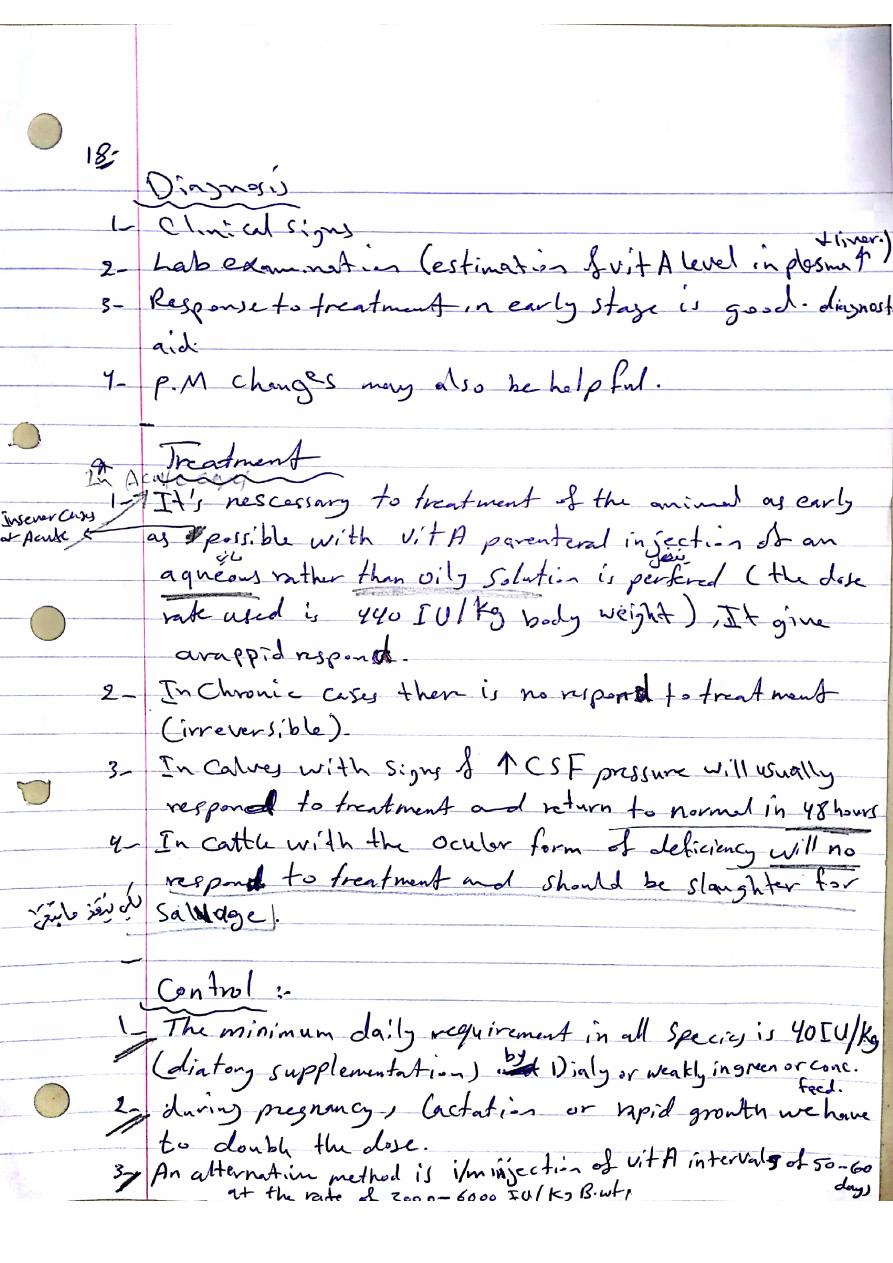 18-
Diagnosis
1- Clinical signs
+ liver.)
2- Lab examination (estimation of vit A level in plasma
3- Response to treatment in early stage is good. diagnost
aid.
4- P.M changes may also be helpful.
Treatment
In Acute
1- It's nescessary to treatment of the animal as early
in sever Cases
or Acute
as possible with vit A parenteral injection of an
aqueous rather than oily solution is perfered (the dose
rate used is 440 IU/Kg body weight), It give
a rappid respond.
2- In Chronic cases there is no respond to treatment
(irreversible).
3- In Calves with signs of ↑ CSF pressure will usually
respond to treatment and return to normal in 48 hours
4- In cattle with the ocular form of deficiency will no
respond to treatment and should be slaughter for
salvage.
Control :-
1- The minimum daily requirement in all species is 40 IU/Kg
(diatory supplementation) by Dialy or weakly in green or conc.
feed.
2- during pregnancy, lactation or rapid growth we have
to double the dose.
3- An alternation method is i/m injection of vit A intervals of 50-60
days
at the rate of 3000-6000 IU/Kg B.wt,